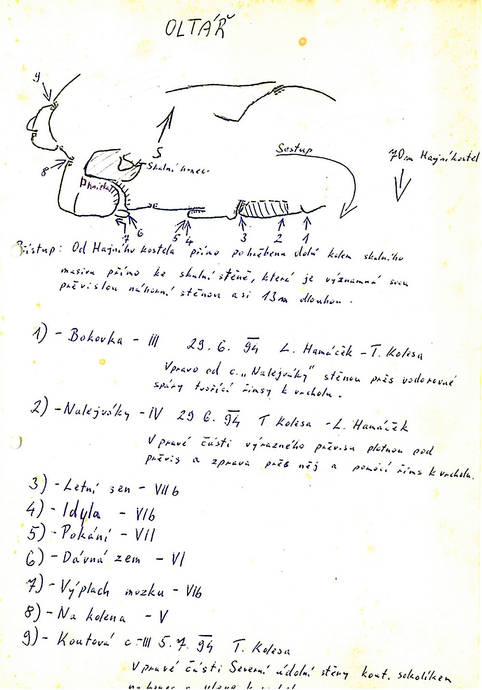 OLTÁŘ
9
8
S
Skalní hrnec
Plošina
Sestup
70m Hajní kostel
7 6 5 4 3 2 1
Přístup: Od Hajního kostela přímo dolů kolem skalního
masivu přímo ke skalní stěně, která je významná svou
převislou náhorní stěnou asi 13m dlouhou.
1) - Bokovka - III 29. 6. 94 L. Hamáček - T. Kolesa
Vpravo od c. „Nalejváky" stěnou přes vodorovné
spáry tvořící římsy k vrcholu.
2) - Nalejváky - IV 29 6. 94 T Kolesa - L. Hamáček
V pravé části výrazného převisu plotnou pod
převis a zprava přes něj a pomocí říms k vrcholu.
3) - Letní sen - VIIb
4) - Idyla - VIb
5) - Pokání - VII
6) - Dávná zem - VI
7) - Výplach mozku - VIIb
8) - Na kolena - V
9) - Koutová c. - III 5. 7. 94 T. Kolesa
V pravé části Severní údolní stěny kout. sokolíkem